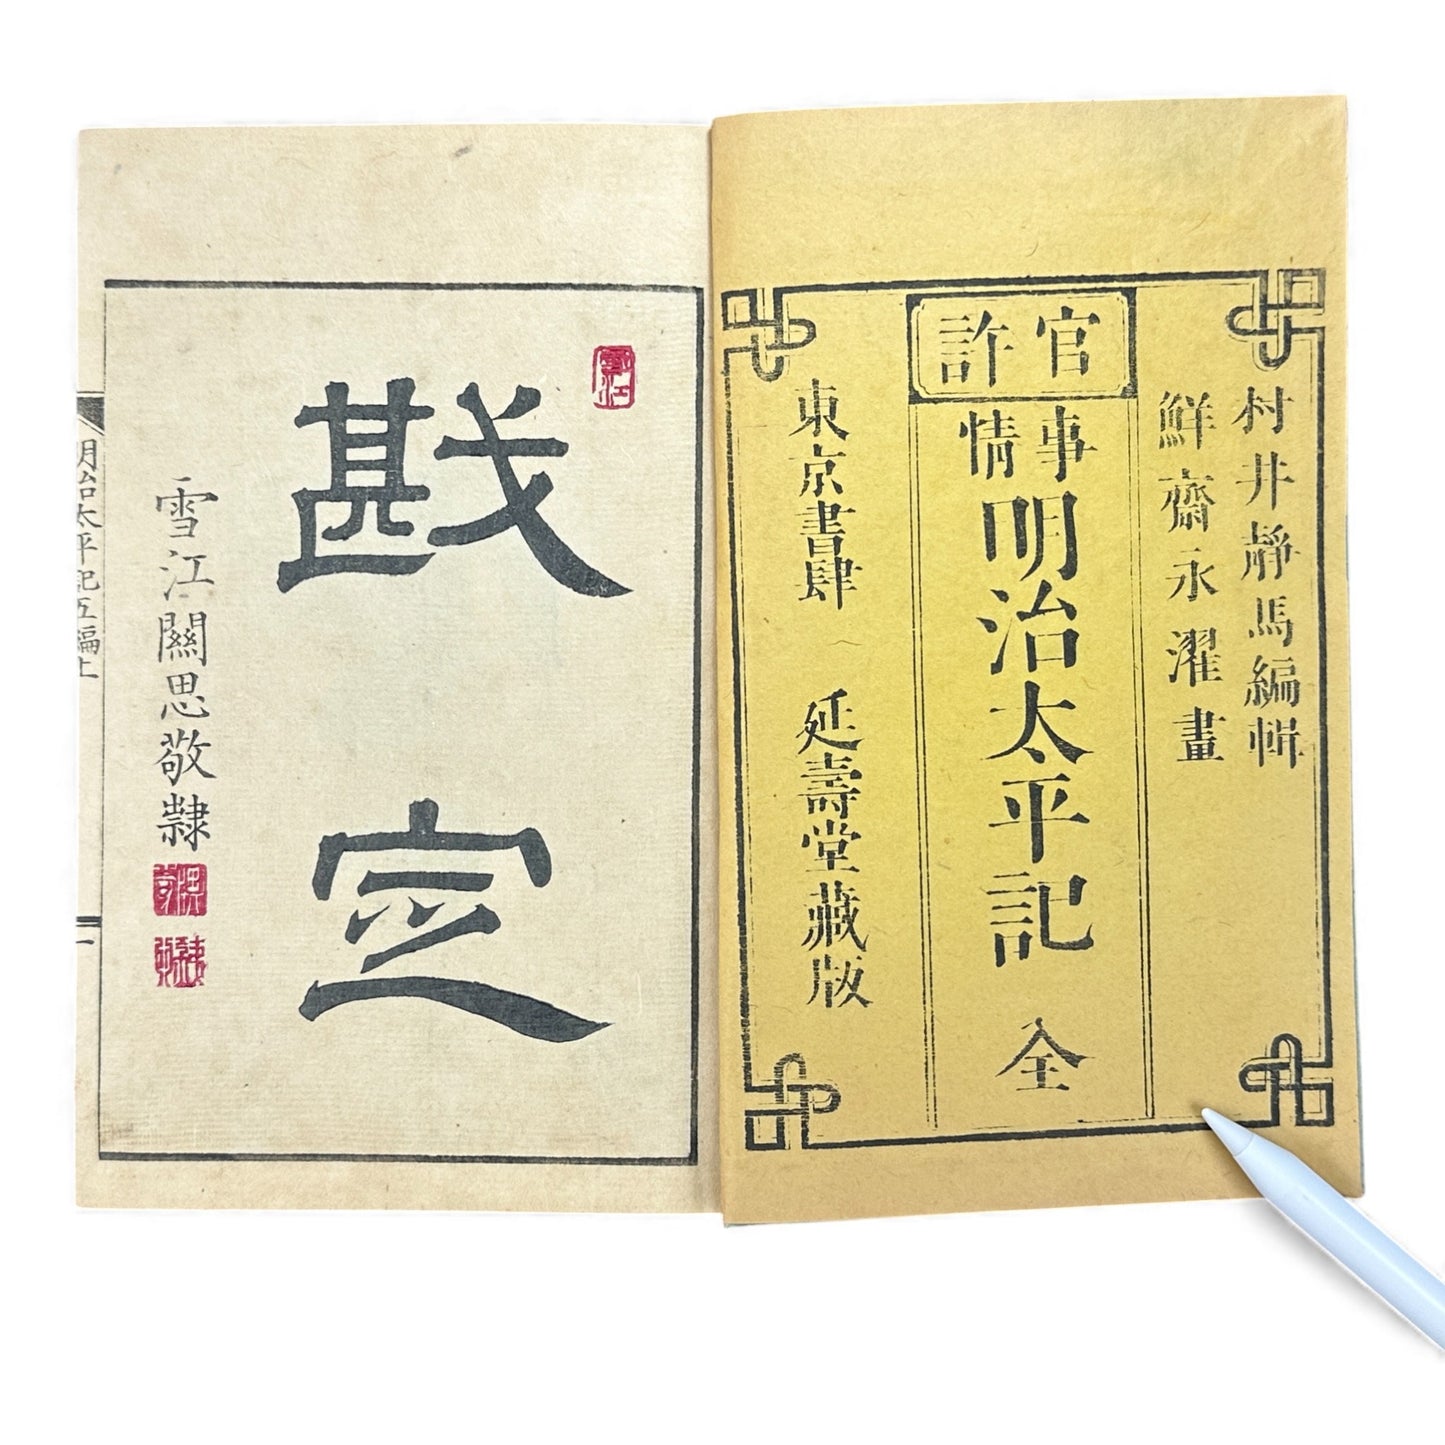 官許
村井靜馬編輯
鮮齋永濯畫
事情
明治太平記 全
東京書肆 延壽堂藏版
戡定
雪江關思敬隷
明治太平記五編上
一